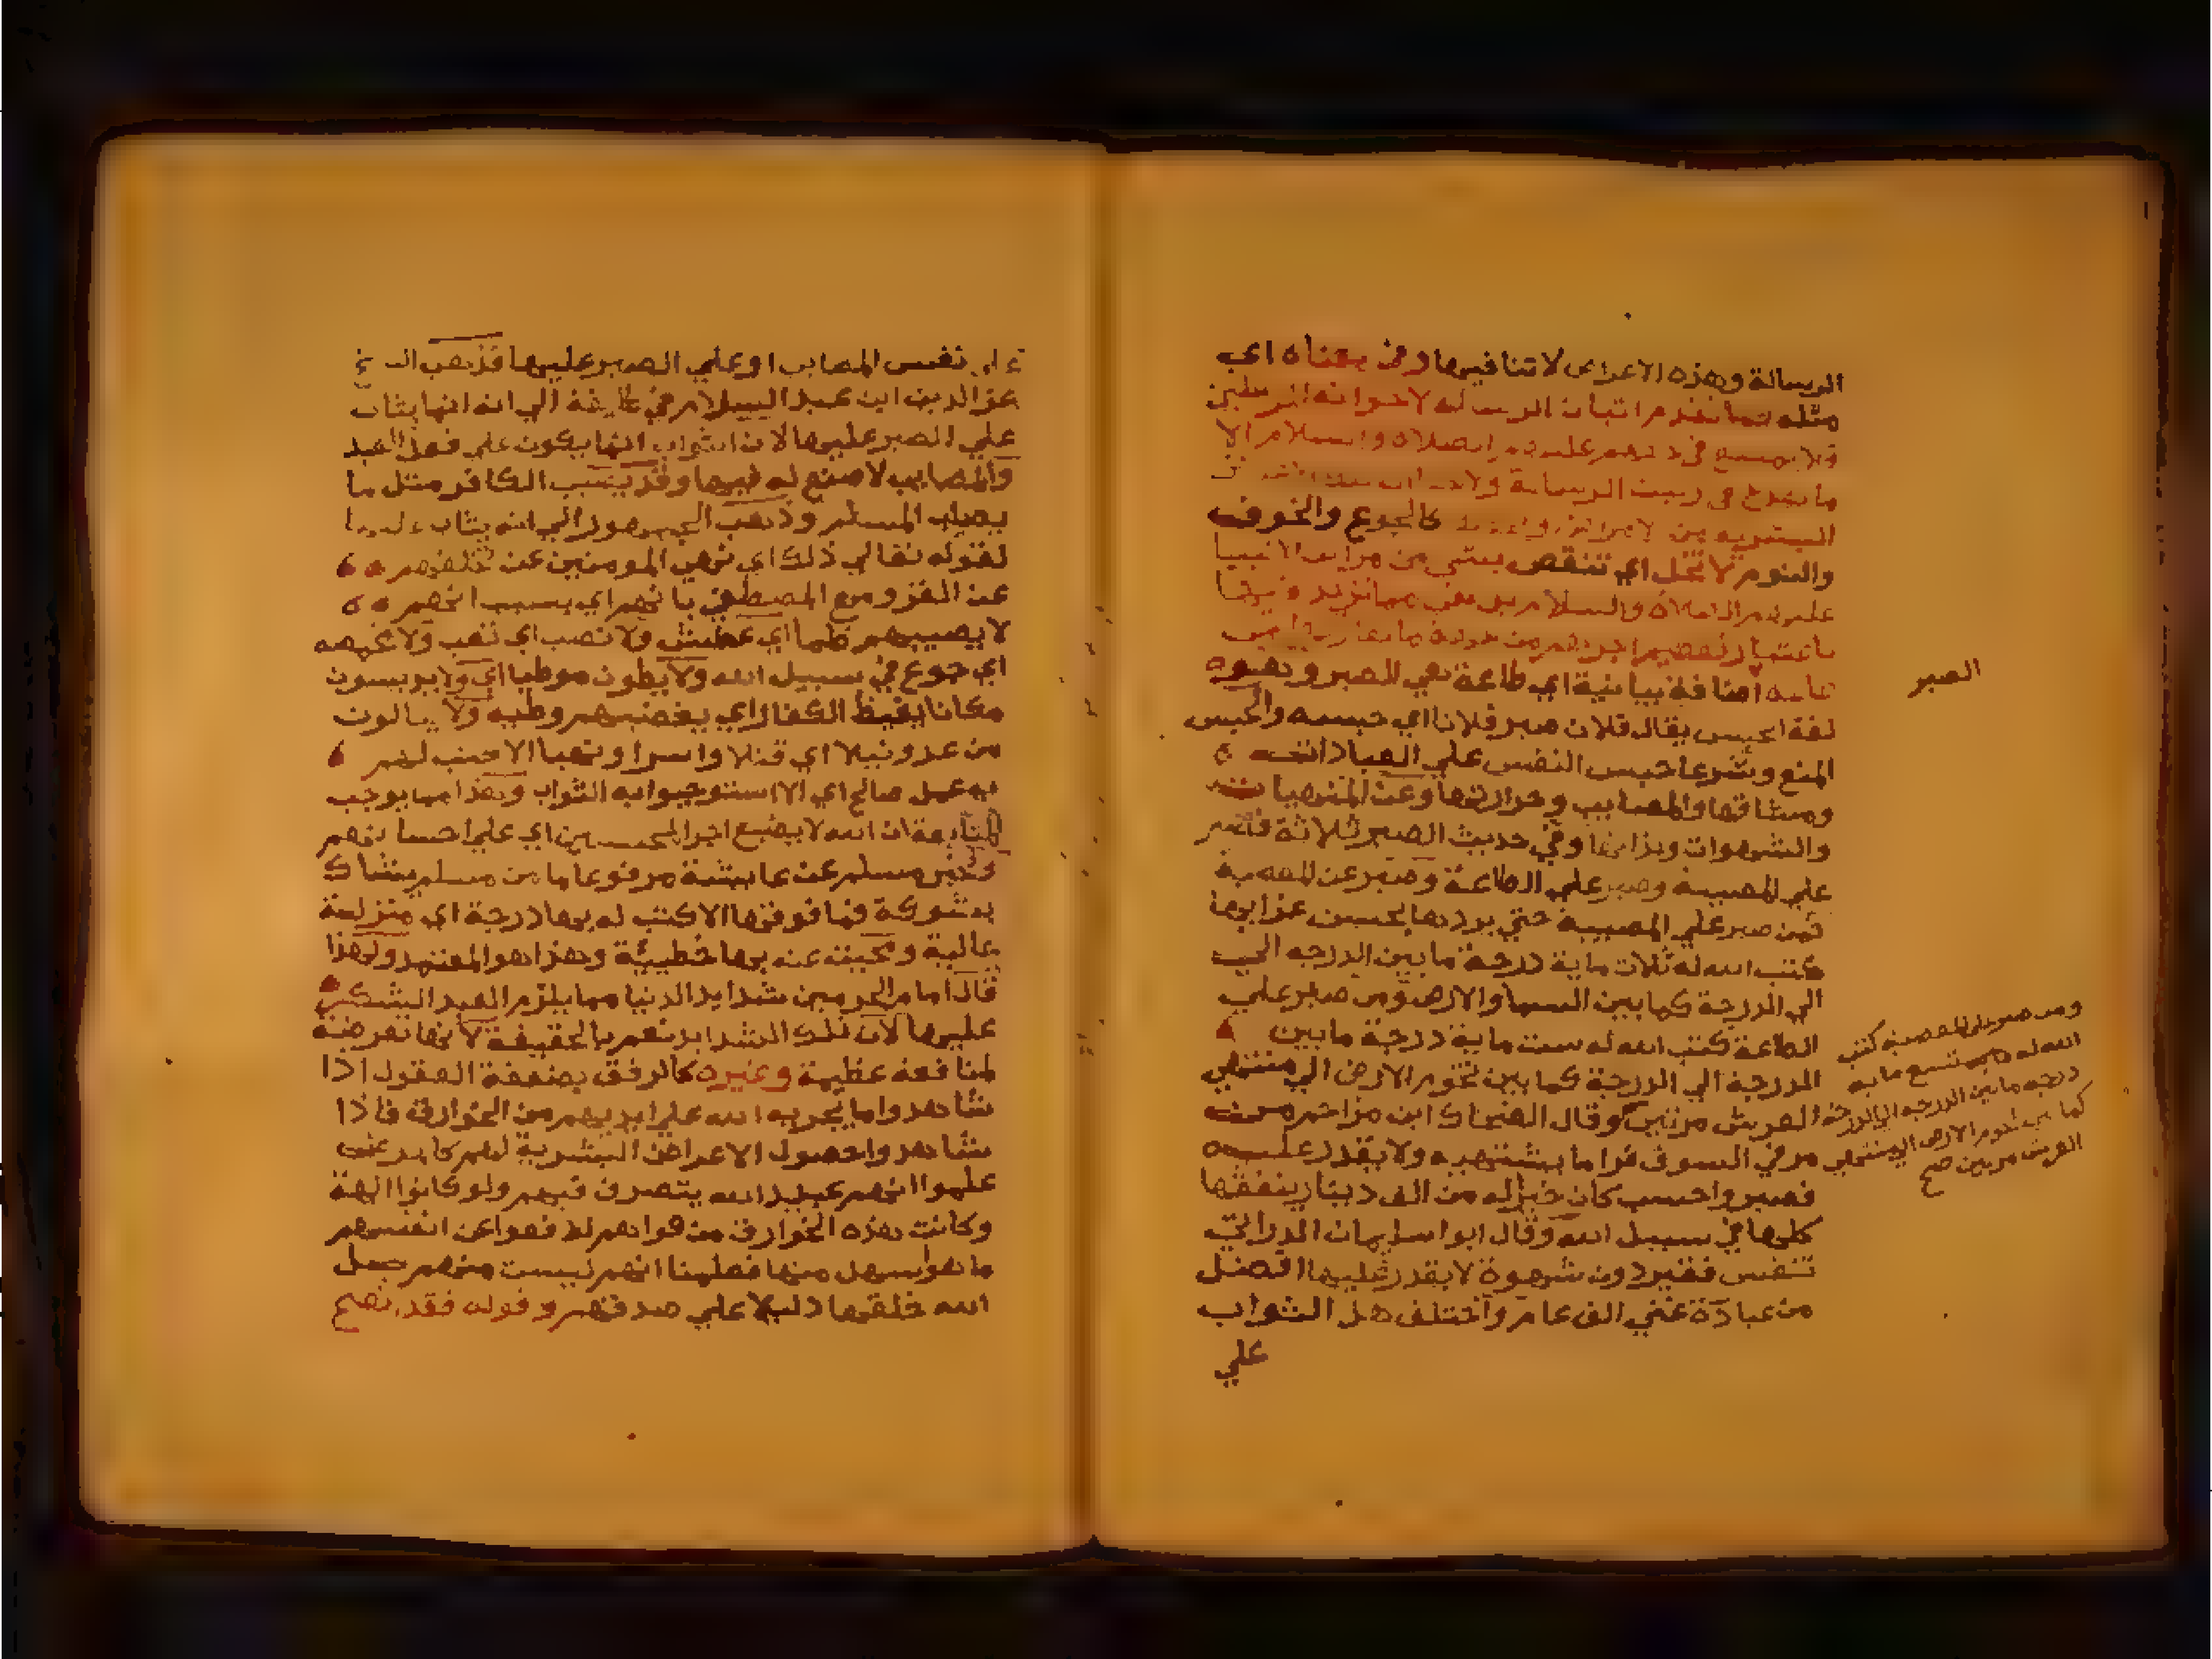 الرسالة وهذه الاعراض لا تنافيها وفي معناه اي
مثله مما تقدم اتيان الرسالة لاخوانه المرسلين
فلا يمتنع في حقهم عليهم الصلاه والسلام الا
ما يقدح في رتبت الرسالة ولا
البشرية من الامراض كالجوع والخوف
والنوم لا تخل اي تنقص بشي من مراتب الانبيا
عليهم الصلاة والسلام بل هي مما تزيد فيها
باعتبار تعظيم اجرهم من جهة ما يقارنها من
طاعة اضافة بيانية اي طاعة هي الصبر وهو
الصبر
لغة الحبس يقال فلان صبر فلانا اي حبسه والحبس
المنع وشرعا حبس النفس علي العبادات
ومشاقها والمصايب وحرارتها وعن المنهيات
والشهوات ولذاتها وفي حديث الصبر ثلاثة فصبر
علي المصيبة وصبر علي الطاعة وصبر عن المعصية
فمن صبر علي المصيبة حتي يردها بحسن عزايها
كتب الله له ثلاث ماية درجة ما بين الدرجه الي
الي الدرجة كما بين السما والارض ومن صبر علي
الطاعة كتب الله له ست ماية درجة ما بين
الدرجة الي الدرجة كما بين تخوم الارض الي منتهي
العرش مرتين وقال الضحاك ابن مزاحم من
مر في السوق فرا ما يشتهيه ولا يقدر عليه
فصبر واحتسب كان خيرا له من الف دينار ينفقها
كلها في سبيل الله وقال ابوا سليمان الدراني
تنفس فقير دون شهوة لا يقدر عليها افضل
من عبادة غني الف عام واختلف هل الثواب
علي
ومن صبر علي المعصية كتب
الله له تسع مايه
درجه ما بين الدرجه الي الدرجه
كما بين تخوم الارض الي منتهي
العرش مرتين صح
نفس المصايب او علي الصبر عليها فذهب
عز الدين ابن عبد السلام في طايفة الي انه انما يثاب
علي الصبر عليها لان الثواب انما يكون علي فعل العبد
والمصايب لا صنع له فيها وقد يصيب الكافر مثل ما
يصيب المسلم وذهب الجمهور الي انه يثاب عليها
لقوله تعالي ذلك اي نهي المومنين عن تخلفهم
عن الغزو مع المصطفي بانهم اي بسبب انهم
لا يصيبهم ظما اي عطش ولا نصب اي تعب ولا مخمصه
اي جوع في سبيل الله ولا يطون موطيا اي ولا يدوسون
مكانا يغيظ الكفار اي يغضبهم وطيه ولا ينالون
من عدو نيلا اي قتلا واسرا ونهبا الا كتب لهم
به عمل صالح اي الا استوجبوا به الثواب وهذا مما يوجب
المتابعة ان الله لا يضيع اجر المحسنين اي علي احسانهم
وخبر مسلم عن عايشة مرفوعا ما من مسلم يشاك
بشوكة فما فوقها الا كتب له بها درجة اي منزلة
عالية ومحيت عنه بها خطيئة وهذا هو المعتمد ولهذا
قال امام الحرمين شدايد الدنيا مما يلزم العبد الشكر
عليها لان تلك الشدايد نعم بالحقيقة لانها تعرضه
لمنافعة عظيمة وغيره كالرفق بضعفة العقول اذا
شاهدوا ما يجريه الله علي ايديهم من الخوارق فاذا
شاهدوا حصول الاعراض البشرية لهم كالمرض
علموا انهم عبيد الله يتصرف فيهم ولو كانوا الهة
وكانت هذه الخوارق من قواهم لدفعوا عن انفسهم
ما هو اسهل منها فعلمنا انهم ليست منهم بل
الله خلقها دليلا علي صدقهم وقوله فقد تضح